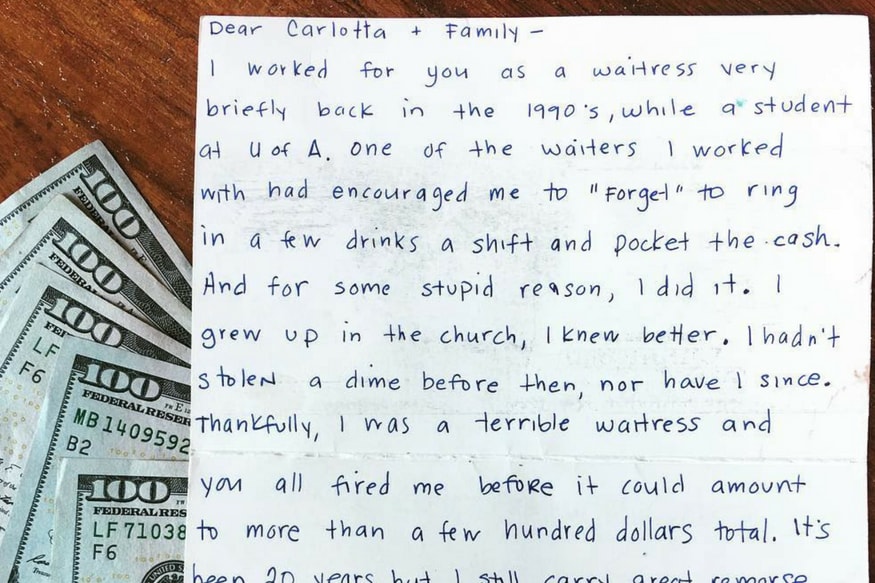 Dear Carlotta + Family -
I worked for you as a waitress very
briefly back in the 1990's, while a student
at U of A. One of the waiters I worked
with had encouraged me to "Forget" to ring
in a few drinks a shift and pocket the cash.
And for some stupid reason, I did it. I
grew up in the church, I knew better. I hadn't
stolen a dime before then, nor have I since.
Thankfully, I was a terrible waitress and
you all fired me before it could amount
to more than a few hundred dollars total. It's
been 20 years but I still carry great remorse
100
FEDERAL
100
FEDERAL
100
LF
F6
100
FEDERAL RESER
MB1409592
B2
100
LF71038
F6